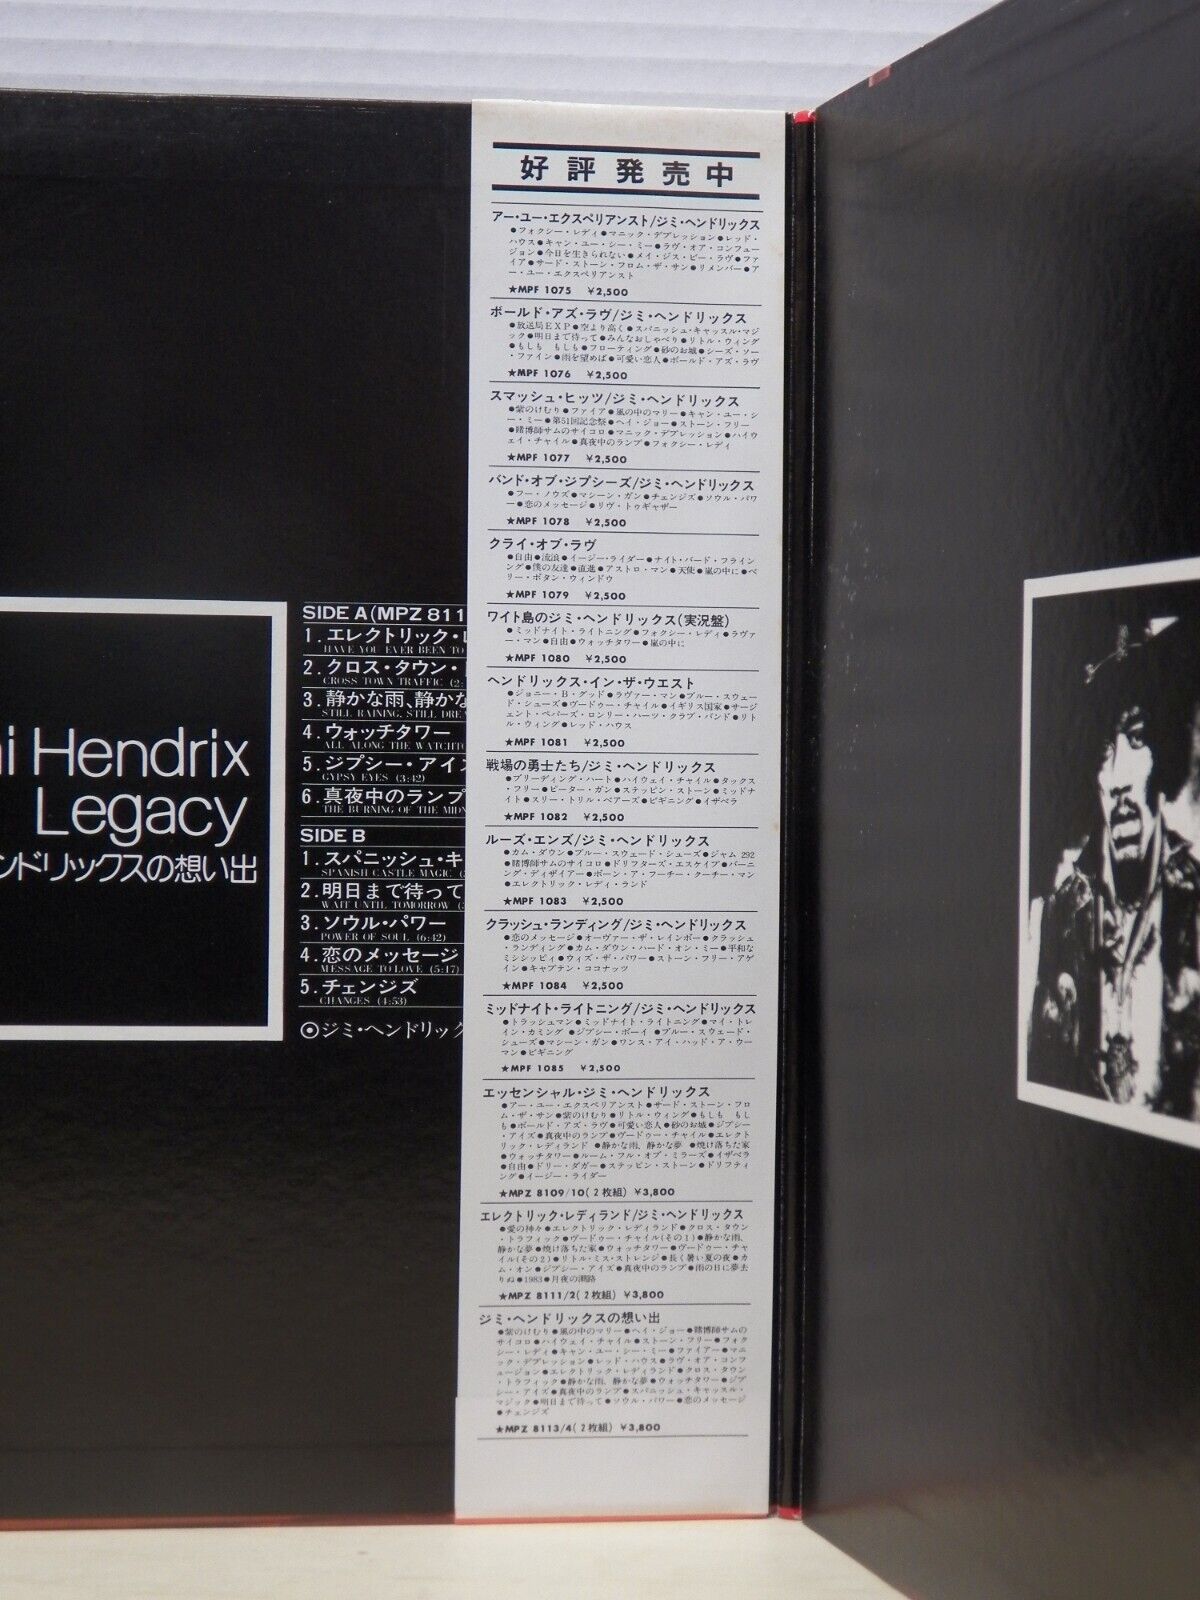 Hendrix
Legacy
ンドリックスの想い出
SIDE A (MPZ 811
1. エレクトリック・
HAVE YOU EVER BEEN TO
2. クロス・タウン・
CROSS TOWN TRAFFIC (2:
3. 静かな雨、静かな
STILL RAINING, STILL DRE
4. ウォッチタワー
ALL ALONG THE WATCHT
5. ジプシー・アイ
GYPSY EYES (3:42)
6. 真夜中のランプ
THE BURNING OF THE MID
SIDE B
1. スパニッシュ・キ
SPANISH CASTLE MAGIC (
2. 明日まで待って
WAIT UNTIL TOMORROW (
3. ソウル・パワー
POWER OF SOUL (6:42)
4. 恋のメッセージ
MESSAGE TO LOVE (5:17)
5. チェンジズ
CHANGES (4:53)
◎ジミ・ヘンドリック
好評発売中
アー・ユー・エクスペリアンスト/ジミ・ヘンドリックス
●フォクシー・レディ●マニック・デプレッション●レッド・
ハウス●キャン・ユー・シー・ミー●ラヴ・オア・コンフュー
ジョン●今日を生きられない●メイ・ジス・ビー・ラヴ●ファ
イア●サード・ストーン・フロム・ザ・サン●リメンバー●ア
ー・ユー・エクスペリアンスト
★MPF 1075 ¥2,500
ボールド・アズ・ラヴ/ジミ・ヘンドリックス
●放送局EXP●空より高く●スパニッシュ・キャッスル・マジ
ック●明日まで待って●みんなおしゃべり●リトル・ウィング
●もしも もしも●フローティング●砂のお城●シーズ・ソー
・ファイン●雨を望めば●可愛い恋人●ボールド・アズ・ラヴ
★MPF 1076 ¥2,500
スマッシュ・ヒッツ/ジミ・ヘンドリックス
●紫のけむり●ファイア●風の中のマリー●キャン・ユー・シ
ー・ミー●第51回記念祭●ヘイ・ジョー●ストーン・フリー
●賭博師サムのサイコロ●マニック・デプレッション●ハイウ
ェイ・チャイル●真夜中のランプ●フォクシー・レディ
★MPF 1077 ¥2,500
バンド・オブ・ジプシーズ/ジミ・ヘンドリックス
●フー・ノウズ●マシーン・ガン●チェンジズ●ソウル・パワ
ー●恋のメッセージ●リヴ・トゥギャザー
★MPF 1078 ¥2,500
クライ・オブ・ラヴ
●自由●流浪●イージー・ライダー●ナイト・バード・フライン
ング●僕の友達●直進●アストロ・マン●天使●嵐の中に●ベ
リー・ボタン・ウィンドウ
★MPF 1079 ¥2,500
ワイト島のジミ・ヘンドリックス(実況盤)
●ミッドナイト・ライトニング●フォクシー・レディ●ラヴァ
ー・マン●自由●ウォッチタワー●嵐の中に
★MPF 1080 ¥2,500
ヘンドリックス・イン・ザ・ウエスト
●ジョニー・B・グッド●ラヴァー・マン●ブルー・スウェー
ド・シューズ●ヴードゥー・チャイル●イギリス国家●サージ
ェント・ペパーズ・ロンリー・ハーツ・クラブ・バンド●リト
ル・ウィング●レッド・ハウス
★MPF 1081 ¥2,500
戦場の勇士たち/ジミ・ヘンドリックス
●ブリーディング・ハート●ハイウェイ・チャイル●タックス
・フリー●ピーター・ガン●ステッピン・ストーン●ミッドナ
イト●スリー・トリル・ベアーズ●ビギニング●イザベラ
★MPF 1082 ¥2,500
ルーズ・エンズ/ジミ・ヘンドリックス
●カム・ダウン●ブルー・スウェード・シューズ●ジャム 292
●賭博師サムのサイコロ●ドリフターズ・エスケイプ●バーニ
ング・ディザイアー●ボーン・ア・フーチー・クーチー・マン
●エレクトリック・レディ・ランド
★MPF 1083 ¥2,500
クラッシュ・ランディング/ジミ・ヘンドリックス
●恋のメッセージ●オーヴァー・ザ・レインボー●クラッシュ
・ランディング●カム・ダウン・ハード・オン・ミー●平和な
ミシシッピィ●ウィズ・ザ・パワー●ストーン・フリー・アゲ
イン●キャプテン・ココナッツ
★MPF 1084 ¥2,500
ミッドナイト・ライトニング/ジミ・ヘンドリックス
●トラッシュマン●ミッドナイト・ライトニング●マイ・トレ
イン・カミング●ジプシー・ボーイ●ブルー・スウェード・
シューズ●マシーン・ガン●ワンス・アイ・ハッド・ア・ウー
マン●ビギニング
★MPF 1085 ¥2,500
エッセンシャル・ジミ・ヘンドリックス
●アー・ユー・エクスペリアンスト●サード・ストーン・フロ
ム・ザ・サン●紫のけむり●リトル・ウィング●もしも もし
も●ボールド・アズ・ラヴ●可愛い恋人●砂のお城●ジプシー
・アイズ●真夜中のランプ●ヴードゥー・チャイル●エレクト
リック・レディランド●静かな雨、静かな夢●焼け落ちた家
●ウォッチタワー●ルーム・フル・オブ・ミラーズ●イザベラ
●自由●ドリー・ダガー●ステッピン・ストーン●ドリフティ
ング●イージー・ライダー
★MPZ 8109/10(2枚組) ¥3,800
エレクトリック・レディランド/ジミ・ヘンドリックス
●愛の神々●エレクトリック・レディランド●クロス・タウン
・トラフィック●ヴードゥー・チャイル(その1)●静かな雨、
静かな夢●焼け落ちた家●ウォッチタワー●ヴードゥー・チャ
イル(その2)●リトル・ミス・ストレンジ●長く暑い夏の夜●カ
ム・オン●ジプシー・アイズ●真夜中のランプ●雨の日に夢去
りぬ●1983●月夜の潮路
★MPZ 8111/2(2枚組) ¥3,800
ジミ・ヘンドリックスの想い出
●紫のけむり●風の中のマリー●ヘイ・ジョー●賭博師サムの
サイコロ●ハイウェイ・チャイル●ストーン・フリー●フォク
シー・レディ●キャン・ユー・シー・ミー●ファイアー●マニ
ック・デプレッション●レッド・ハウス●ラヴ・オア・コンフ
ュージョン●エレクトリック・レディランド●クロス・タウン
・トラフィック●静かな雨、静かな夢●ウォッチタワー●ジプ
シー・アイズ●真夜中のランプ●スパニッシュ・キャッスル・
マジック●明日まで待って●ソウル・パワー●恋のメッセージ
●チェンジズ
★MPZ 8113/4(2枚組) ¥3,800